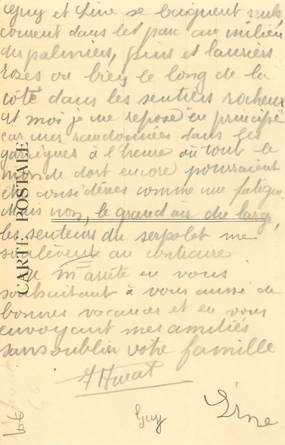 Guy et Line se baignent seuls
courent dans les parc au milieu
des palmiers, pins et lauriers
roses ou bien le long de la
côte dans les sentiers rocheux
et moi je me repose en principe
car mes randonnées dans les
garrigues à l'heure où tout le
monde dort encore pourraient
être considérées comme une fatigue
Mais non, le grand air du large,
les senteurs du serpolet me
soulèvent au contraire
Je m'arrête en vous
souhaitant à vous aussi de
bonnes vacances et en vous
envoyant mes amitiés
sans oublier votre famille
Guy
Line
CARTE POSTALE